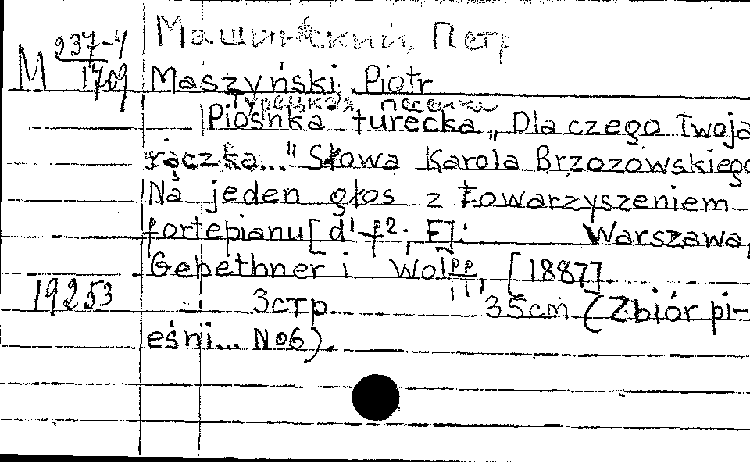 М 237-4
1709
Машинский, Петр
Maszyński, Piotr
Турецкая песенка
Piosnka turecka „Dla czego Twoja
rączka..." Słowa Karola Brzozowskiego
Na jeden głos z towarzyszeniem
fortepianu [d¹-f²; F].   Warszawa,
Gebethner i Wolff, [1887]
19253   3стр.   35cm. (Zbiór pi-
eśni... №6).